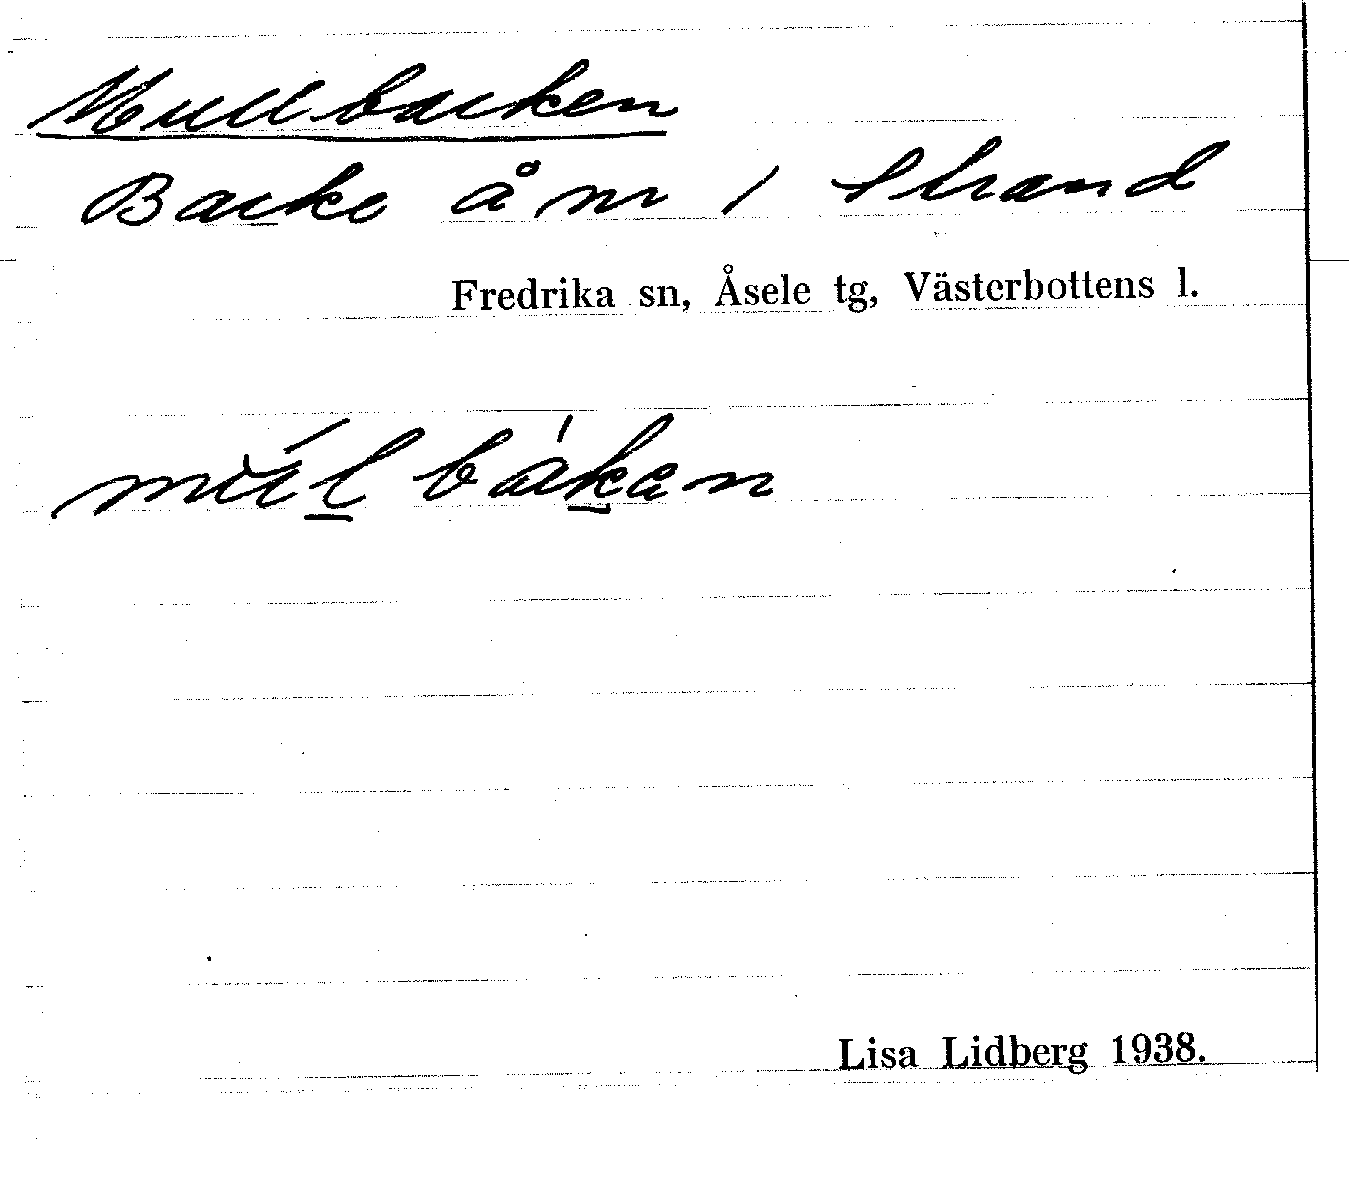 Mullbacken
Backe å nr 1 Strand
Fredrika sn, Åsele tg, Västerbottens l.
mul̲bak̲an
Lisa Lidberg 1938.